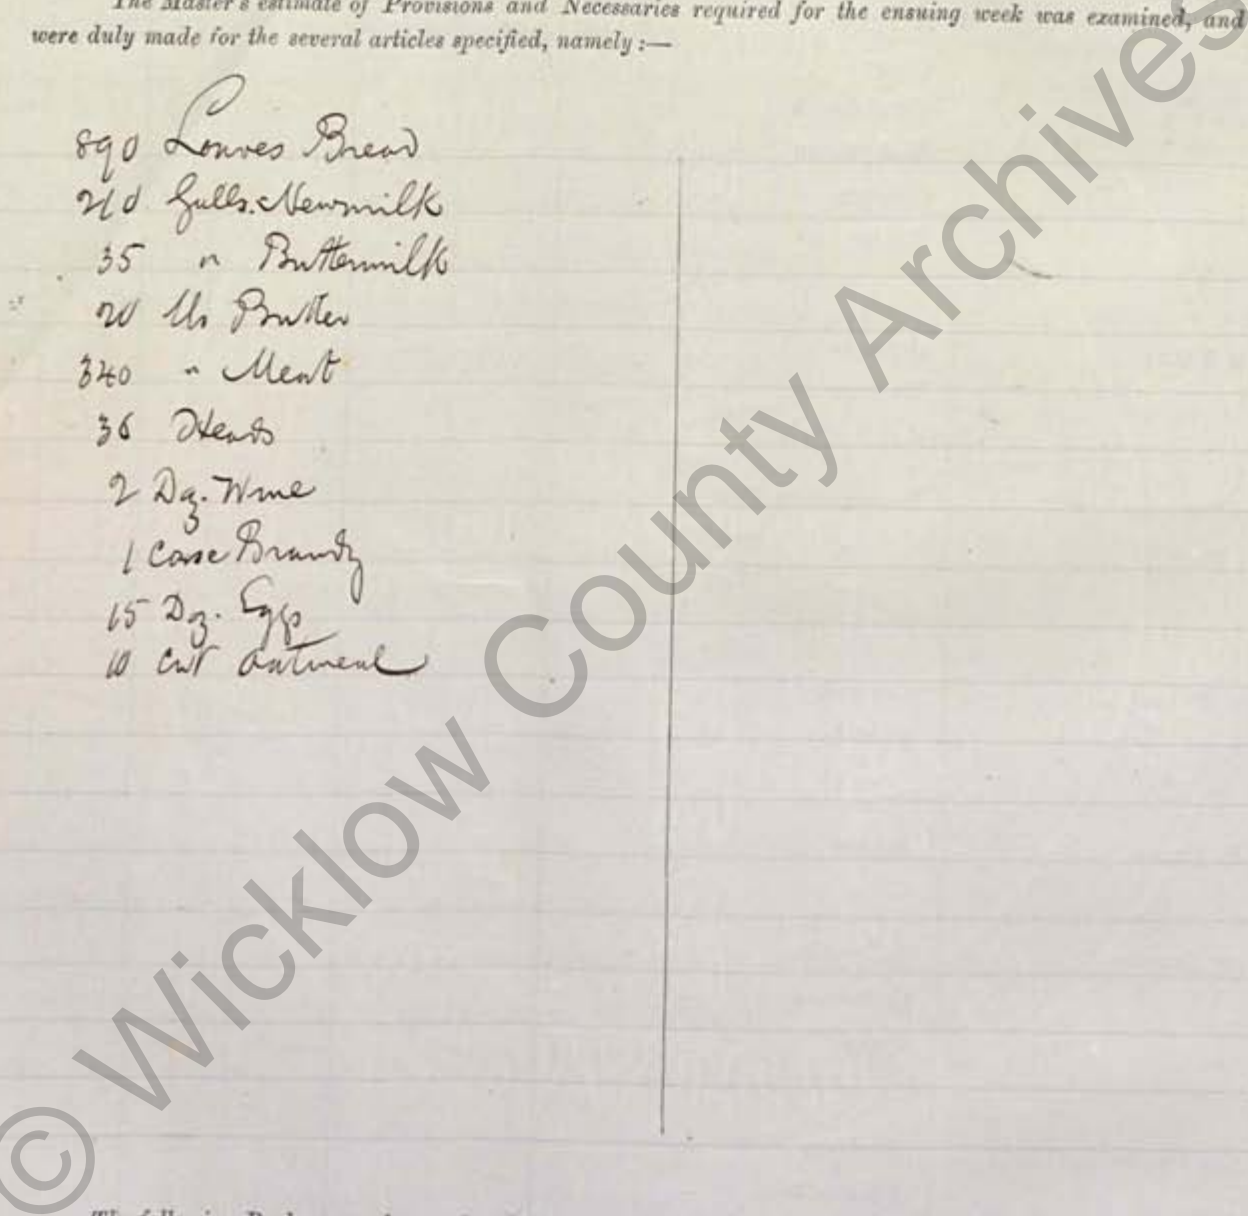 The Master's estimate of Provisions and Necessaries required for the ensuing week was examined, and
were duly made for the several articles specified, namely :—
890 Loaves Bread
210 Galls. Newmilk
35 " Buttermilk
20 lbs Butter
340 " Meat
36 Heads
2 Dz. Wine
1 Case Brandy
15 Dz. Eggs
10 cwt Oatmeal
© Wicklow County Archives